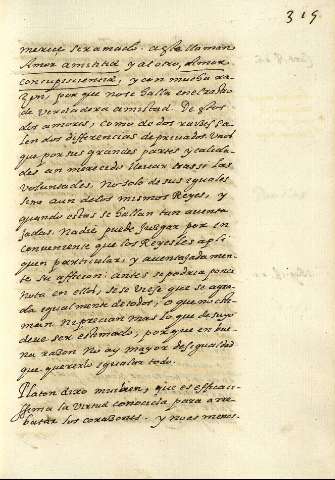 315
merece ser amado. a este llaman
Amor amistad y al otro, amor
concupiscencia, y con mucha ra
zon, por que no se halla en el rastro
de verdadera amistad. De estos
dos amores, como de dos raices sa
len dos differencias de privados. Unos
que por sus grandes partes y calida
des an merecido llevar tras si las
voluntades. No solo de sus iguales
sino aun de los mismos Reyes, y
quando estas se hallan tan aventa
jadas. Nadie puede juzgar por in
conveniente que los Reyes les apli
quen particular, y aventajadamen
te su afficion: antes se podria poner
nota en ellos, si se viese que se agra
da egualmente de todos, o que no esti
man. ni precian mas lo que de suyo
deve ser estimado, por que en bue
na razon No ay mayor desigualdad
que quererlo egualar todo.
Platon dixo muy bien, que es efficaci
ssima la virtud conocida para arre
batar los coraçones. y no es menos